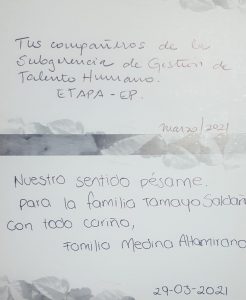 Tus compañeros de la
Subgerencia de Gestión de
Talento Humano.
ETAPA-EP.
marzo/2021
Nuestro sentido pésame.
para la familia Tamayo Saldañ
con todo cariño,
Familia Medina Altamirano
29-03-2021